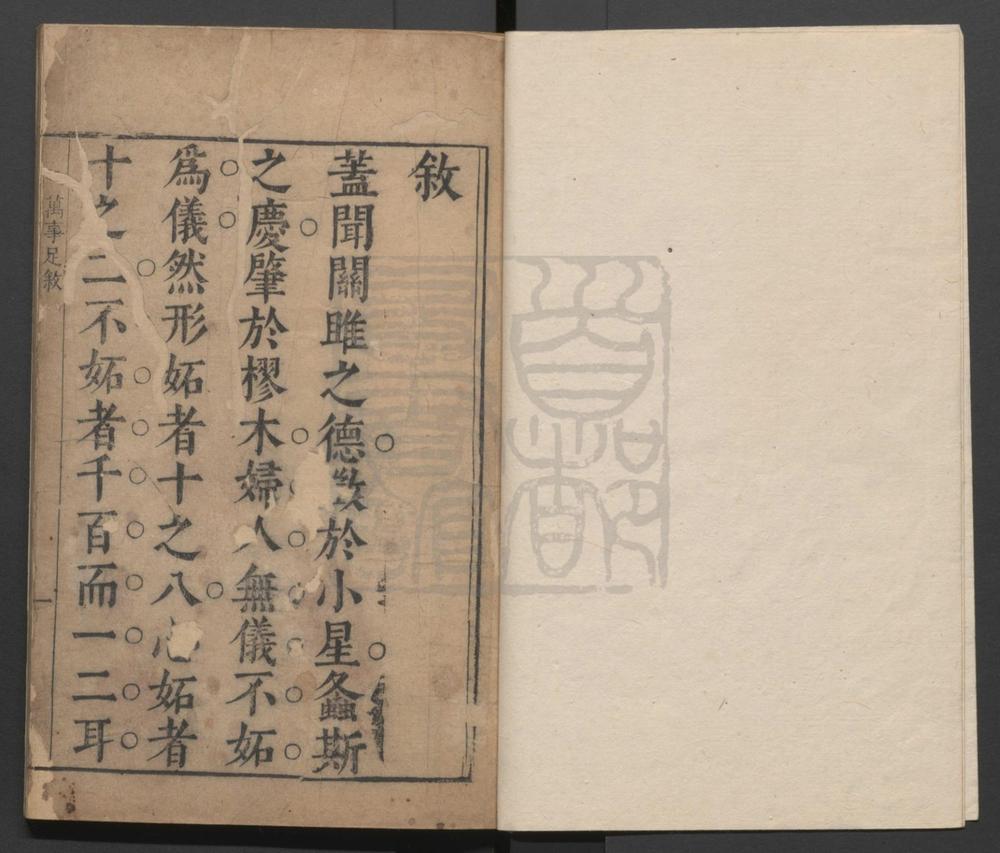 敘
蓋聞關雎之德教於小星螽斯
之慶肇於樛木婦人無儀不妬
為儀然形妬者十之八心妬者
十之二不妬者千百而一二耳
萬事足敘
一